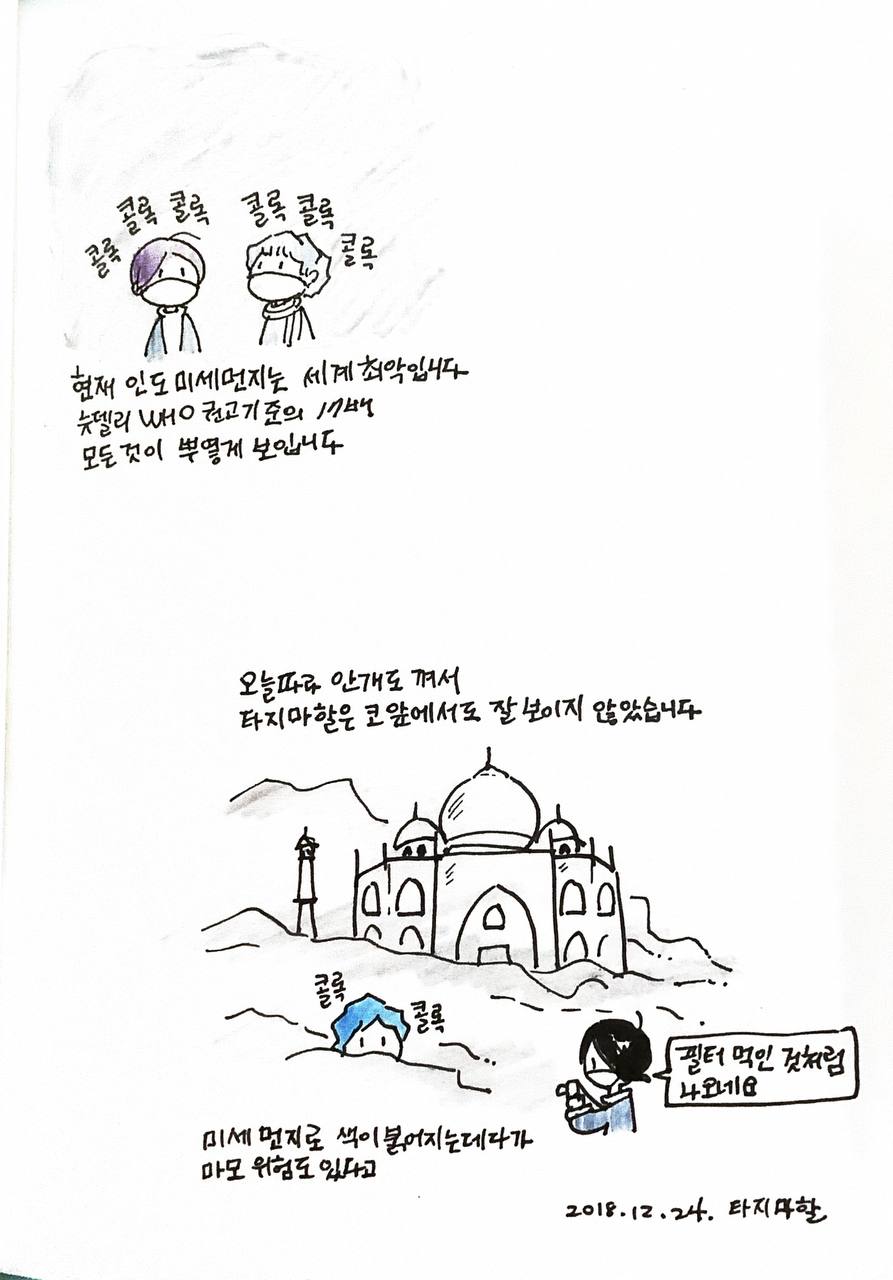 콜록 콜록 콜록
콜록 콜록 콜록
현재 인도 미세먼지는 세계 최악입니다
뉴델리 WHO 권고기준의 17배
모든것이 뿌옇게 보입니다
오늘따라 안개도 껴서
타지마할은 코앞에서도 잘 보이지 않았습니다
콜록 콜록
필터 먹인 것처럼
나오네요
미세먼지로 색이 붉어지는데다가
마모 위험도 있다고
2018.12.24. 타지마할